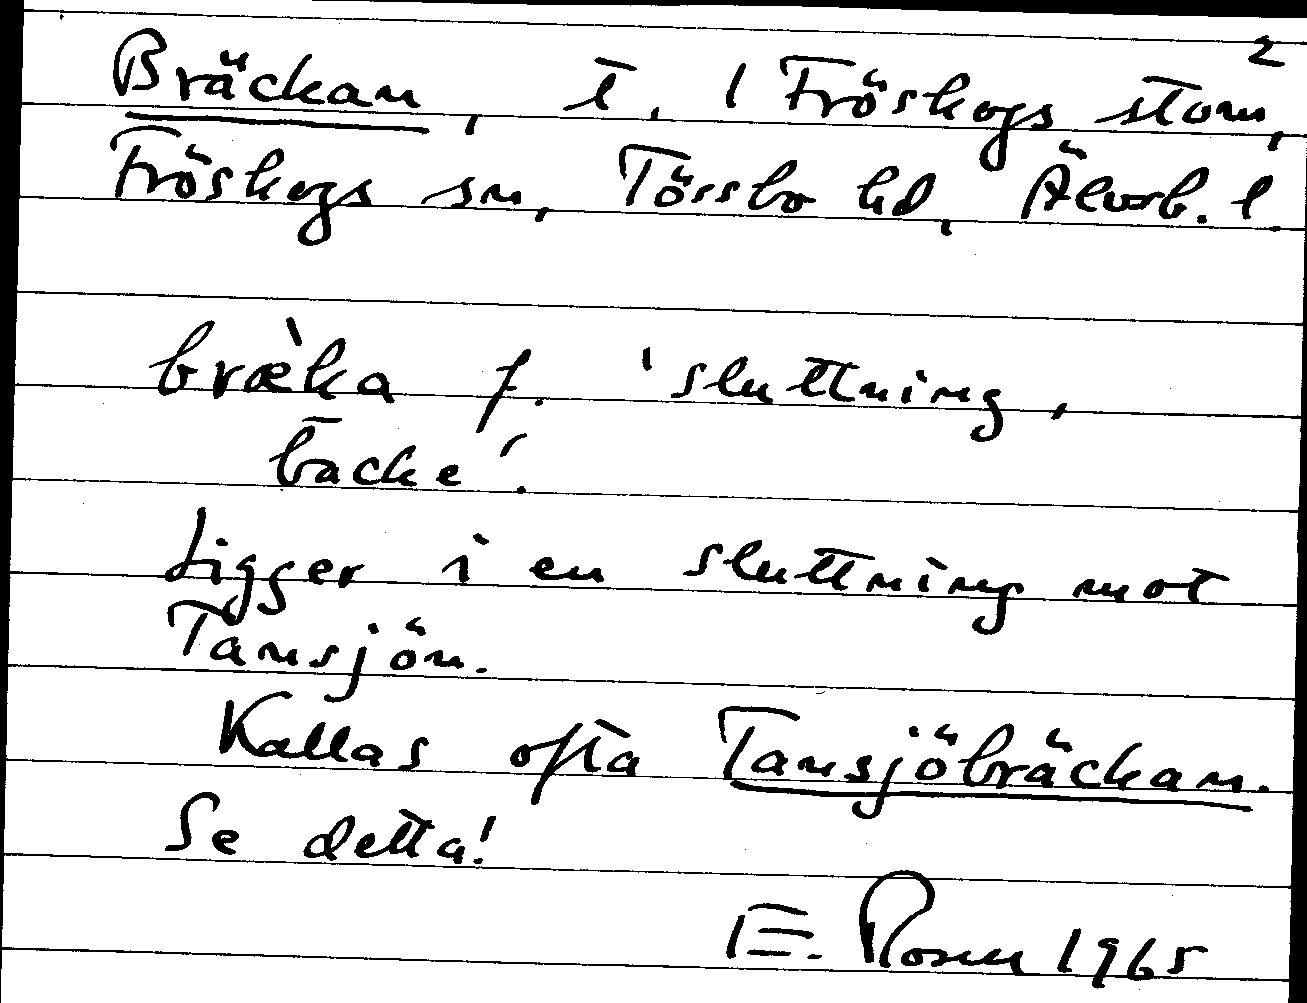 2
Bräckan, t. 1 Fröskogs stom,
Fröskogs sn, Tössbo hd, Älvsb. l.
bræ̀ka f. 'sluttning,
backe'.
Ligger i en sluttning mot
Tansjön.
Kallas ofta Tansjöbräckan.
Se detta!
E. Rosen 1965